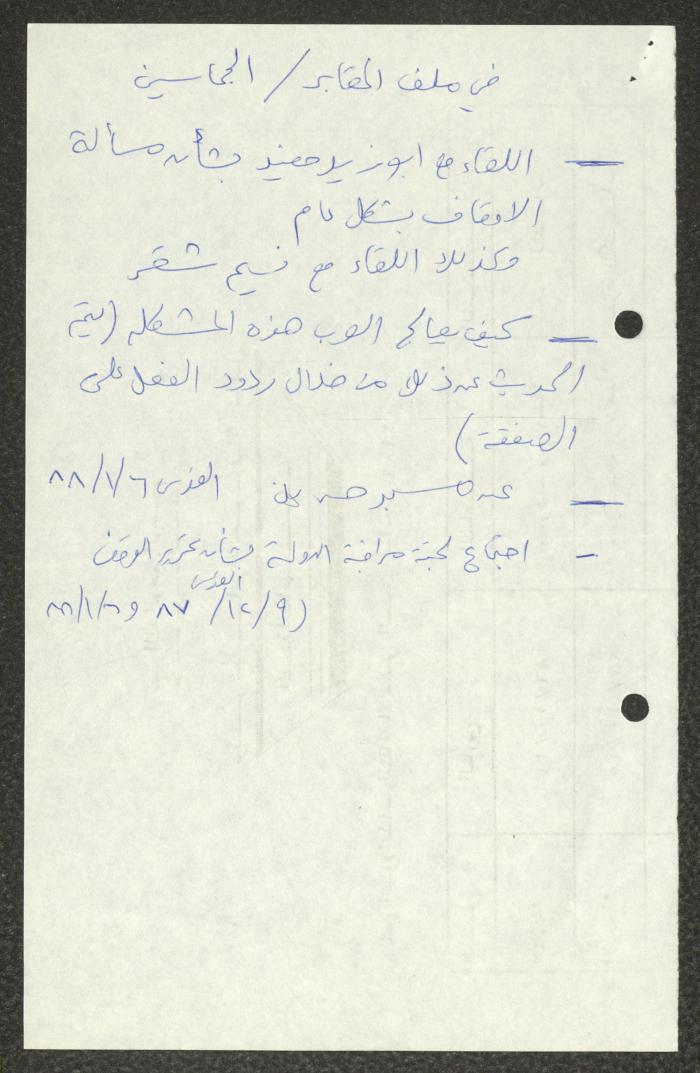 في ملف المقابر / الجماسين
— اللقاء مع ابو زيد حفيد بشأن مسألة
الاوقاف بشكل عام
وكذلك اللقاء مع نسيم شقر
— كيف يعالج العرب هذه المشكلة (يتم
الحديث عن ذلك من خلال ردود الفعل على
الصفقة)
— عن حسن القدس ٨٨/١/٦
- اجتماع لجنة مراقبة الدولة بشأن تحرير الوقف
القدس
(٨٧/١٢/٩ و ٨٨/١/٦